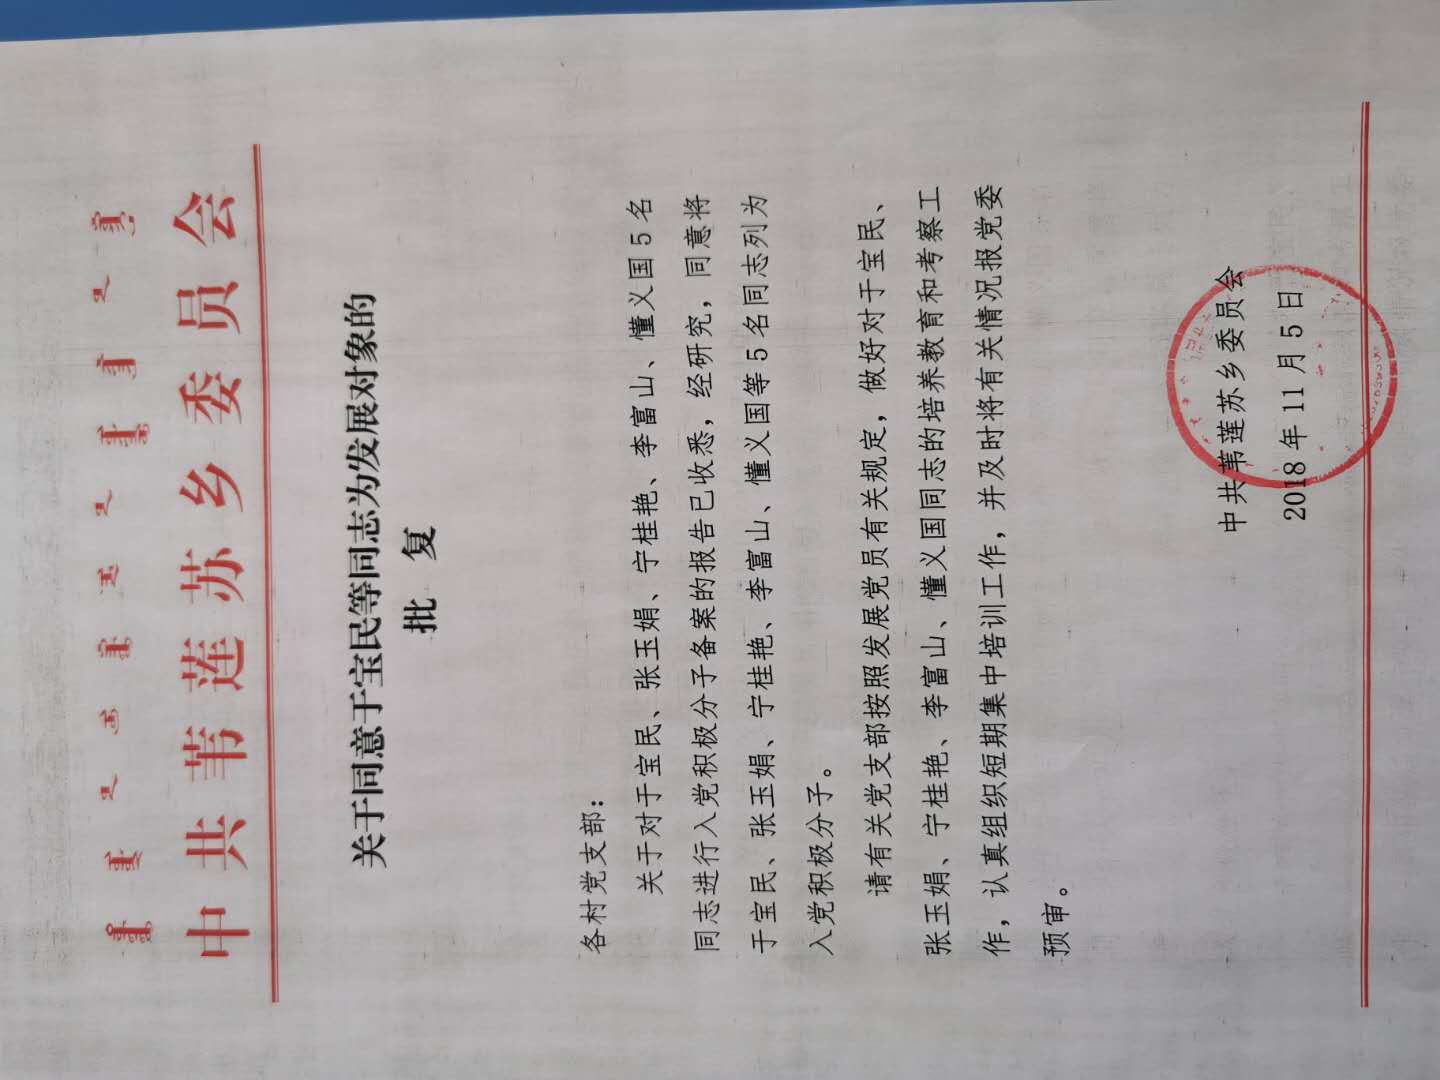 中共苇莲苏乡委员会
关于同意于宝民等同志为发展对象的
批复
各村党支部：
关于对于宝民、张玉娟、宁桂艳、李富山、懂义国5名
同志进行入党积极分子备案的报告已收悉，经研究，同意将
于宝民、张玉娟、宁桂艳、李富山、懂义国等5名同志列为
入党积极分子。
请有关党支部按照发展党员有关规定，做好对于宝民、
张玉娟、宁桂艳、李富山、懂义国同志的培养教育和考察工
作，认真组织短期集中培训工作，并及时将有关情况报党委
预审。
中共苇莲苏乡委员会
2018年11月5日